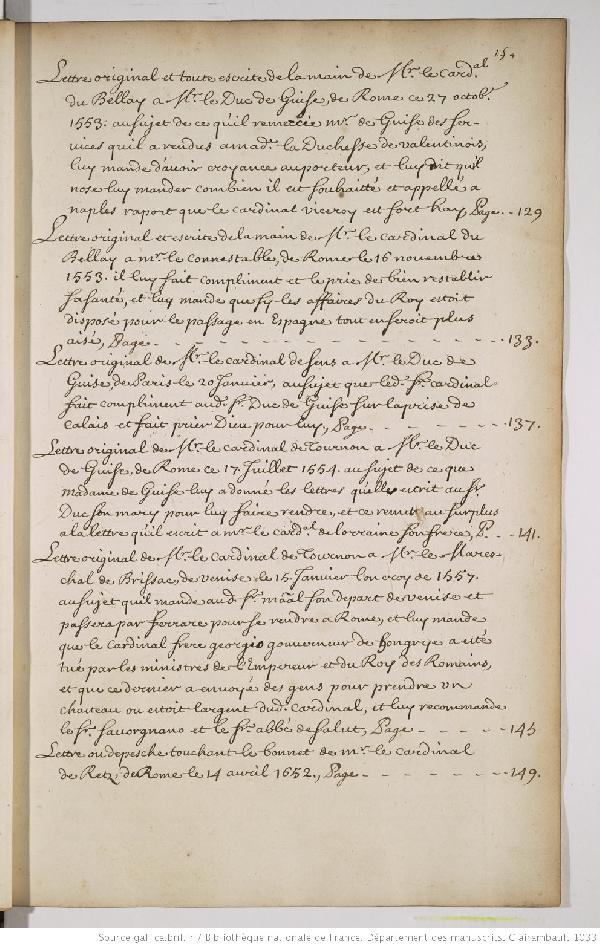 154
Lettre original et toute escrite de la main de Mr. le Card.al
du Bellay a Mr. le Duc de Guise, de Rome ce 27 octobr.
1553. au sujet de ce qu'il remercie mr. de Guise des ser-
vices qu'il a rendus a mad.e la Duchesse de valentinois,
luy mande d'avoir croyance au porteur, et luy dit qu'il
n'ose luy mander combien il est souhaitté et appellé a
naples raport que le cardinal viceroy est fort hay, Page -- 129
Lettre original et escrite de la main de Mr. le cardinal du
Bellay a mr. le connestable, de Rome le 16 novembre
1553. il luy fait compliment et le prie de bien restablir
sa santé, et luy mande que sy les affaires du Roy estoit
disposé pour le passage en Espagne tout en seroit plus
aisé, Page - - - - - - - - - - - - - - - 133.
Lettre original de Mr. le cardinal de Sens a Mr. le Duc de
Guise, de Paris le 20 Janvier, au sujet que led. sr. cardinal
fait compliment aud. sr. Duc de Guise sur la prise de
Calais et fait prier Dieu pour luy, Page - - - - - - 137.
Lettre original de Mr. le cardinal de Tournon a Mr. le Duc
de Guise, de Rome ce 17. Juillet 1554. au sujet de ce que
madame de Guise luy a donné les lettres qu'elle escrit au sr.
Duc son mary pour luy faire rendre, et ce remet au surplus
a la lettre qu'il escrit a mr. le card.al de lorraine son frere, P. - - 141.
Lettre original de Mr. le Cardinal de Tournon a Mr. le Mares-
chal de Brissac, de venise le 15. Janvier l'on croy de 1557.
au sujet qu'il mande aud. sr. maal. son depart de venise et
passera par ferrare pour se rendre a Rome, et luy mande
que le Cardinal frere georgio gouverneur de hongrye a esté
tué par les ministres de l'Empereur et du Roy des Romains,
et que ce dernier a envoyé des gens pour prendre un
chateau ou estoit l'argent dud. Cardinal, et luy recommande
le sr. Savorgnano et le sr. abbé de salut, Page - - - - - - 145
Lettre ou depesche touchant le bonnet de mr. le cardinal
de Retz, de Rome le 14 avril 1652., Page - - - - - - - - 149.
Source gallica.bnf.fr / Bibliothèque nationale de France. Département des manuscrits. Clairambault 1033